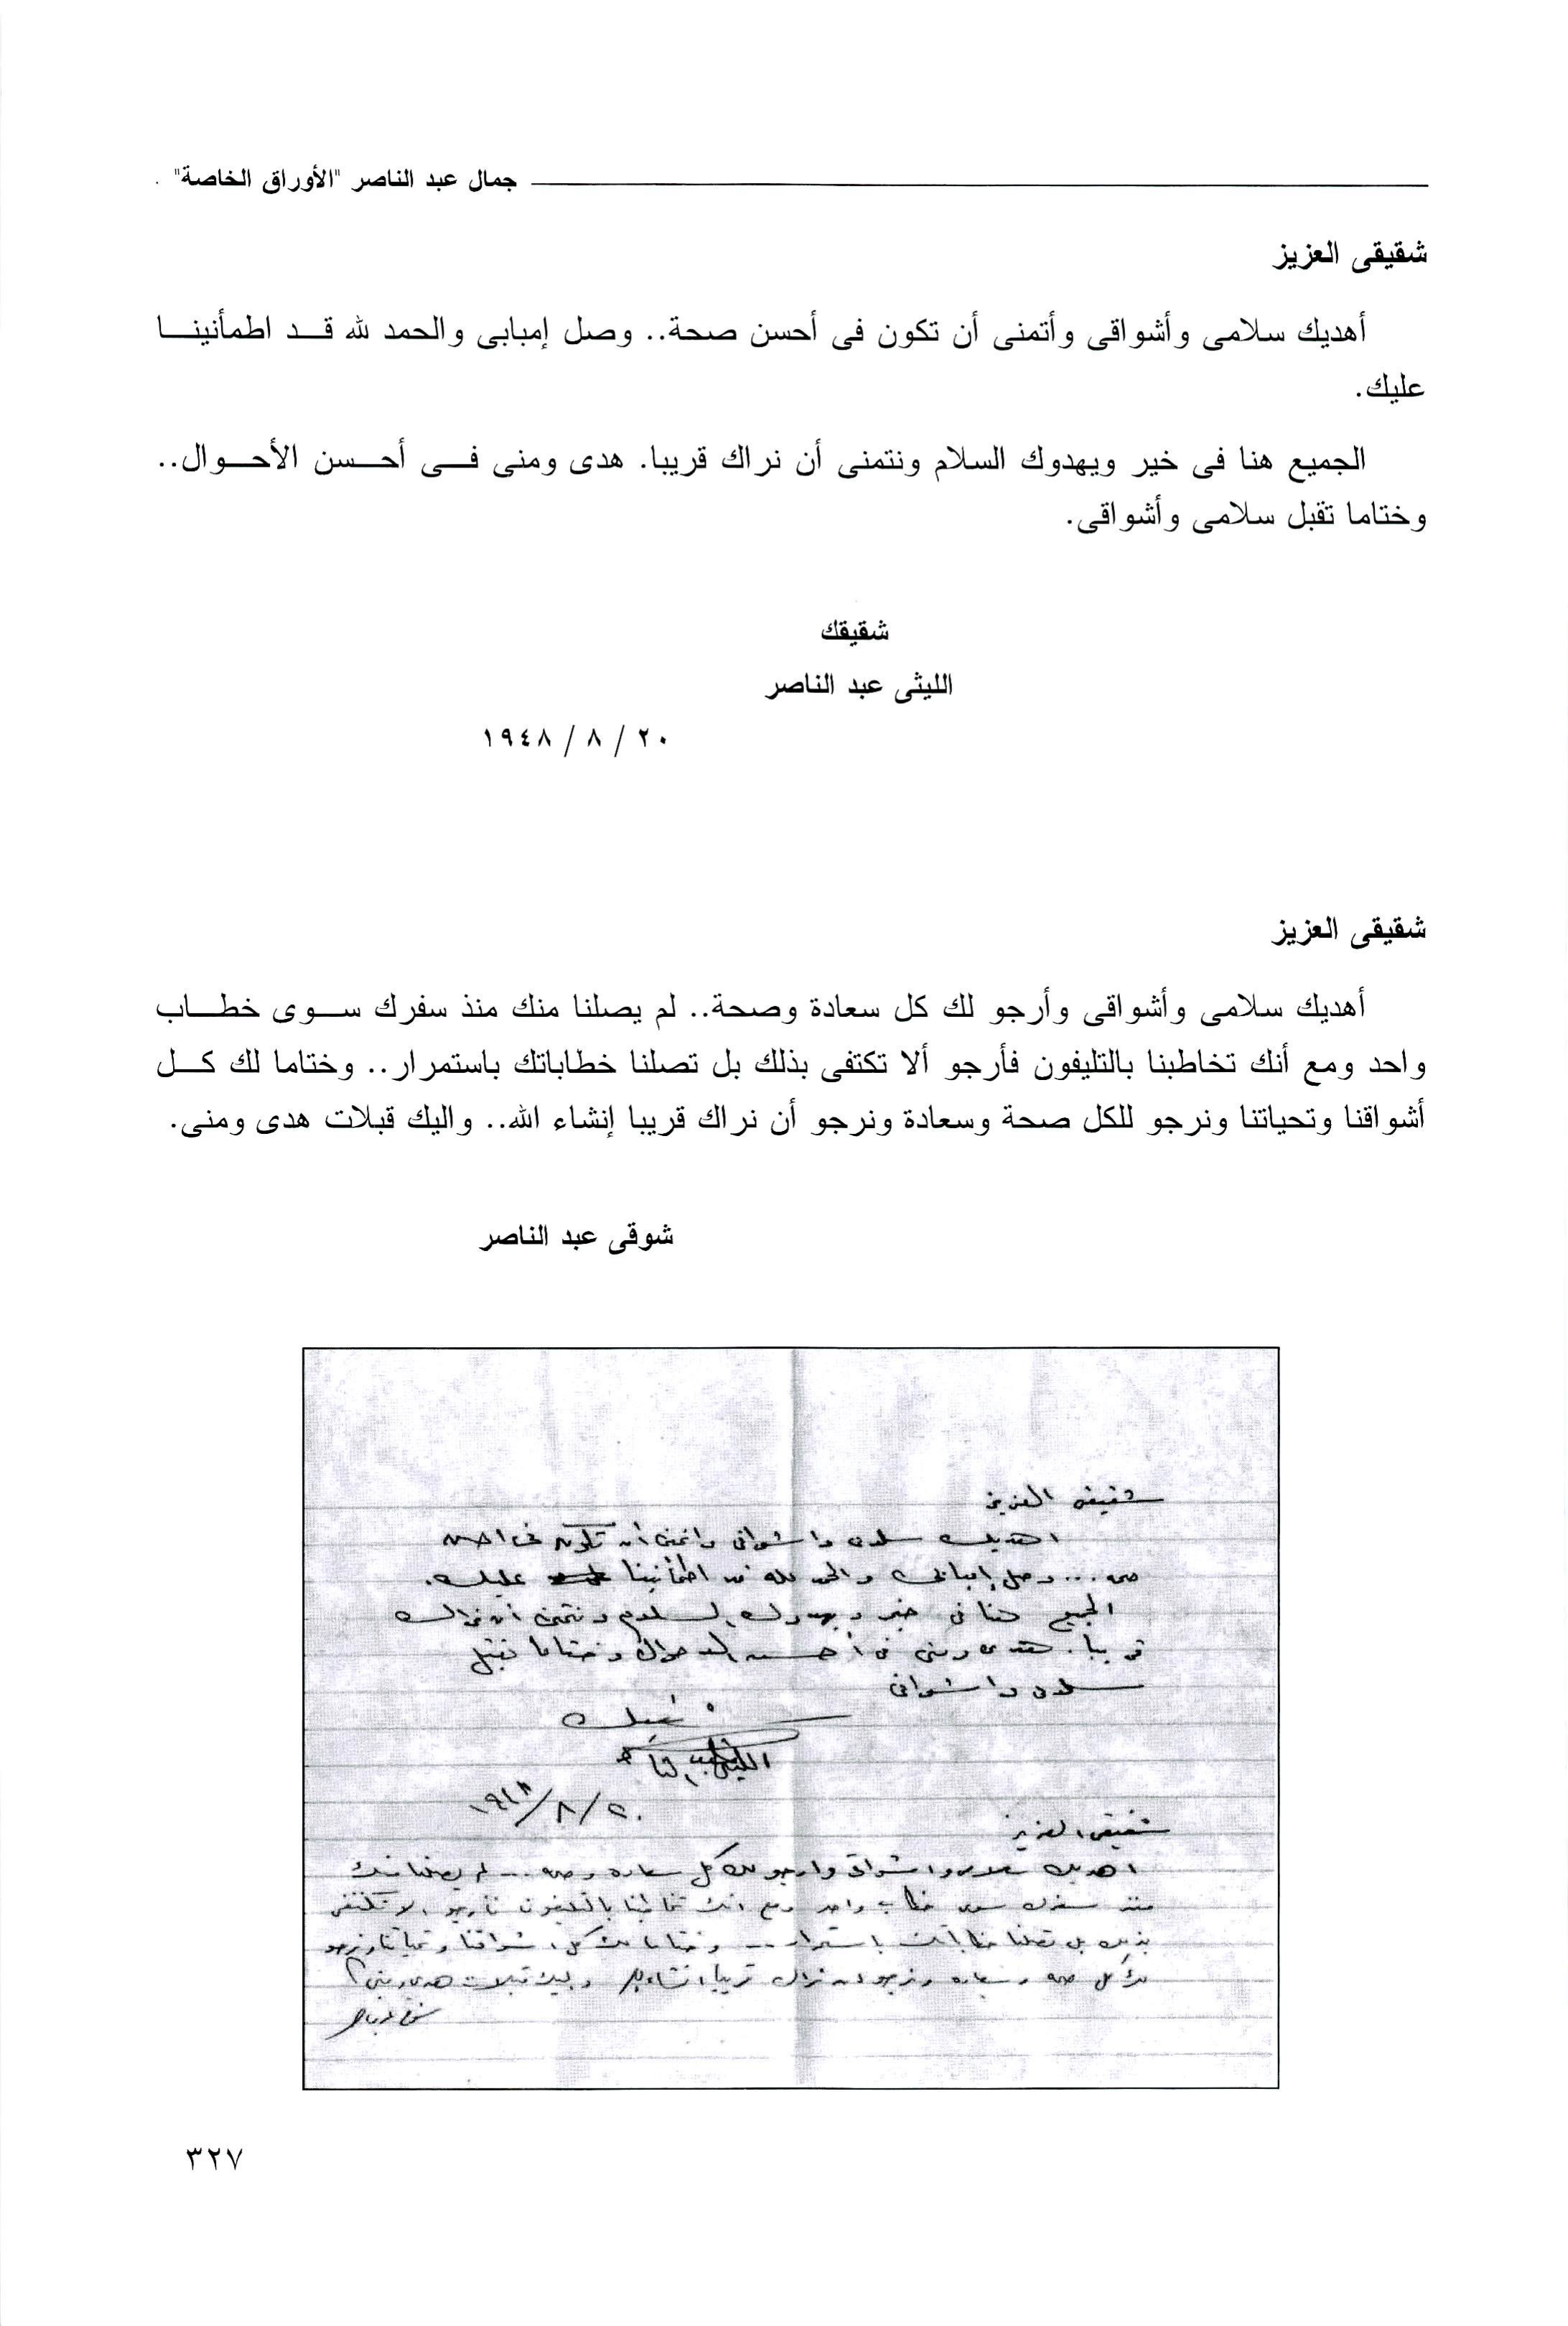 جمال عبد الناصر "الأوراق الخاصة"
شقيقى العزيز
أهديك سلامى وأشواقى وأتمنى أن تكون فى أحسن صحة.. وصل إمبابى والحمد لله قد اطمأنينا
عليك.
الجميع هنا فى خير ويهدوك السلام ونتمنى أن نراك قريبا. هدى ومنى فى أحسن الأحوال..
وختاما تقبل سلامى وأشواقى.
شقيقك
الليثى عبد الناصر
٢٠ / ٨ / ١٩٤٨
شقيقى العزيز
أهديك سلامى وأشواقى وأرجو لك كل سعادة وصحة.. لم يصلنا منك منذ سفرك سوى خطاب
واحد ومع أنك تخاطبنا بالتليفون فأرجو ألا تكتفى بذلك بل تصلنا خطاباتك باستمرار.. وختاما لك كل
أشواقنا وتحياتنا ونرجو للكل صحة وسعادة ونرجو أن نراك قريبا إنشاء الله.. واليك قبلات هدى ومنى.
شوقى عبد الناصر
شقيقى العزيز
اهديك سلامى واشواقى واتمنى أن تكون فى احسن
صحه ... وصل إمبابى والحمد لله قد اطمأنينا عليك.
الجميع هنا فى خير ويهدوك السلام ونتمنى أن نراك
قريبا. هدى ومنى فى أحسن الاحوال وختاما تقبل
سلامى واشواقى
شقيقك
الليثى عبد الناصر
٢٠/٨/١٩٤٨
شقيقى العزيز
اهديك سلامى واشواقى وارجو لك كل سعاده وصحه ... لم يصلنا منك
منذ سفرك سوى خطاب واحد ومع انك تخاطبنا بالتليفون فأرجو الا تكتفى
بذلك بل تصلنا خطاباتك باستمرار -- وختاما لك كل اشواقنا وتحياتنا ونرجو
لك كل صحه وسعاده ونرجو ان نراك قريبا انشاء الله واليك قبلات هدى ومنى
شوقى عبد الناصر
٣٢٧